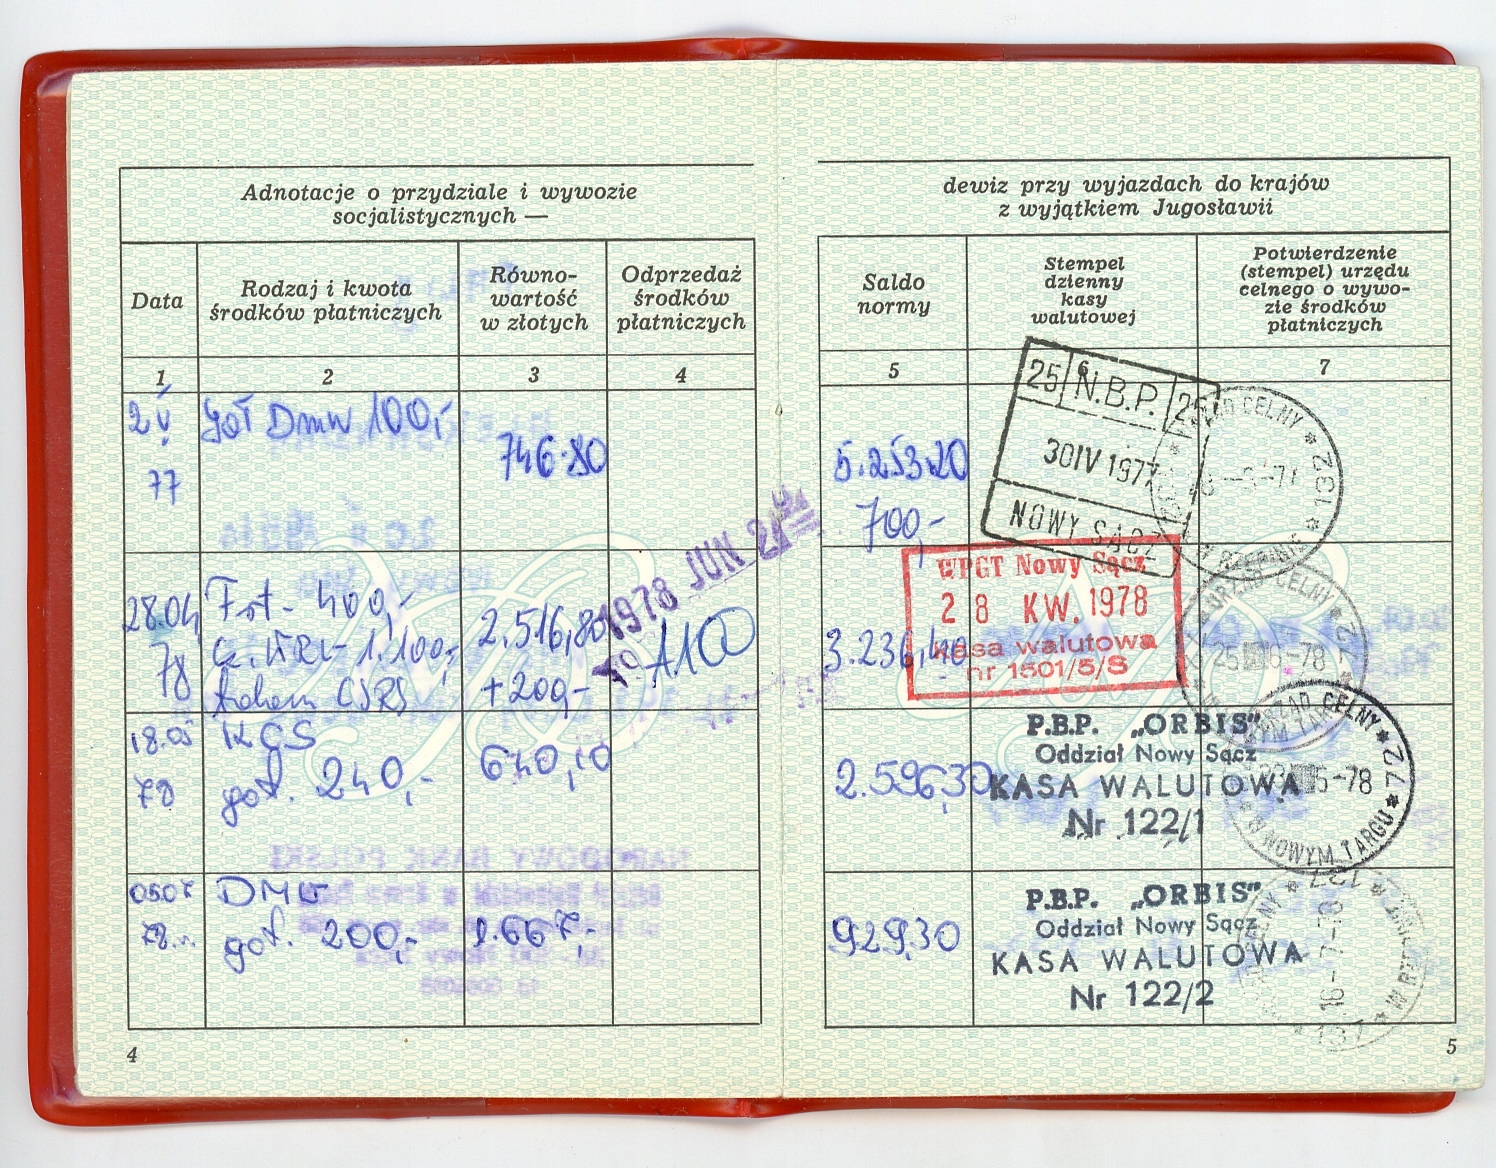 Adnotacje o przydziale i wywozie
socjalistycznych —
Data
Rodzaj i kwota
środków płatniczych
Równo-
wartość
w złotych
Odprzedaż
środków
płatniczych
1
2
3
4
2 V
77
got Dmw 100,-
746.80
28.04
78
400,-
1.100,-
2.516,80
+200,-
1978 JUN 24
A100
18.05
78
KCS
got. 240,-
640,10
05.07
78
got. 200,-
1.667,-
4
dewiz przy wyjazdach do krajów
z wyjątkiem Jugosławii
Saldo
normy
Stempel
dzienny
kasy
walutowej
Potwierdzenie
(stempel) urzędu
celnego o wywo-
zie środków
płatniczych
5
6
7
5.253.20
700,-
25 N.B.P. 25
30 IV 1977
NOWY SĄCZ
URZĄD CELNY
W RZEPINIE
3.236,40
WPGT Nowy Sącz
28 KW. 1978
kasa walutowa
nr 1501/5/S
URZĄD CELNY
W NOWYM TARGU
2.596,30
P.B.P. „ORBIS"
Oddział Nowy Sącz
KASA WALUTOWA
Nr 122/1
URZĄD CELNY
W NOWYM TARGU
929,30
P.B.P. „ORBIS"
Oddział Nowy Sącz
KASA WALUTOWA
Nr 122/2
137
5